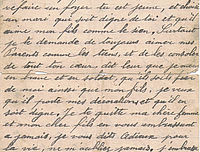 refaire son foyer tu est jeune, et choisie
un mari qui soit digne de toi et qu'il
aime mon fils comme le sien, Surtout
je te demande de toujours aimer mes
Parents comme les tiens, et de les consoler
de tout ton cœur, dit leur que je meurs
en brave et en soldat, qu'ils sois fiers
de moi ainsi que mon fils, je veux
qu'il porte mes décorations et qu'il en
soit digne, je te quitte ma chère femme
et mon cher fils, nous vous embrassons
a jamais, je vous dit Adieux pour
la vie, ne m'oubliez jamais j'embrasse